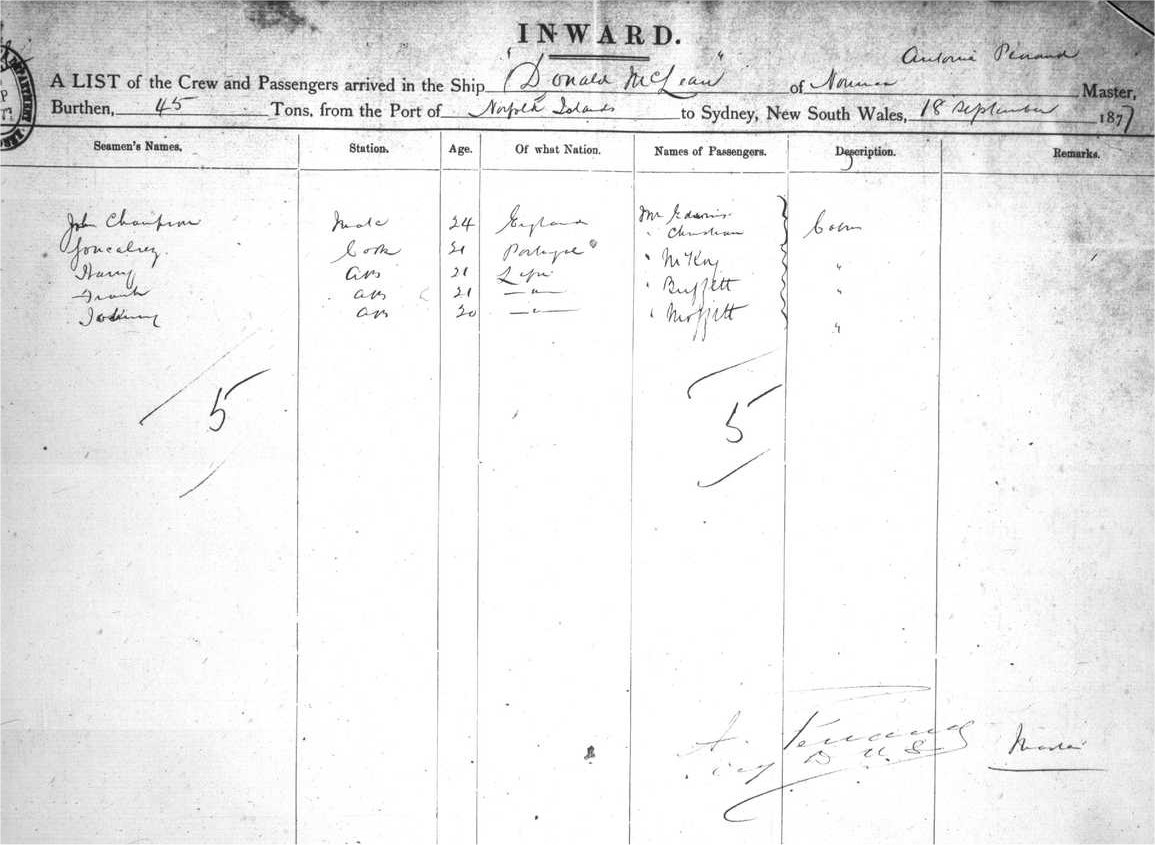 INWARD.
Antoine
A LIST of the Crew and Passengers arrived in the Ship "Donald McLean" of Noumea Master,
Burthen, 45 Tons, from the Port of Norfolk Islands to Sydney, New South Wales, 18 September 1877
Seamen's Names. Station. Age. Of what Nation. Names of Passengers. Description. Remarks.
John Champion Mate 24 England Mr Edwin
" Christian Cabin
Cook 21 Portugal " McKoy "
Harry AB 21 Lifu
Frank AB 21 —"— " Buffett "
AB 20 —"— " Moffitt "
5 5
A.
Master